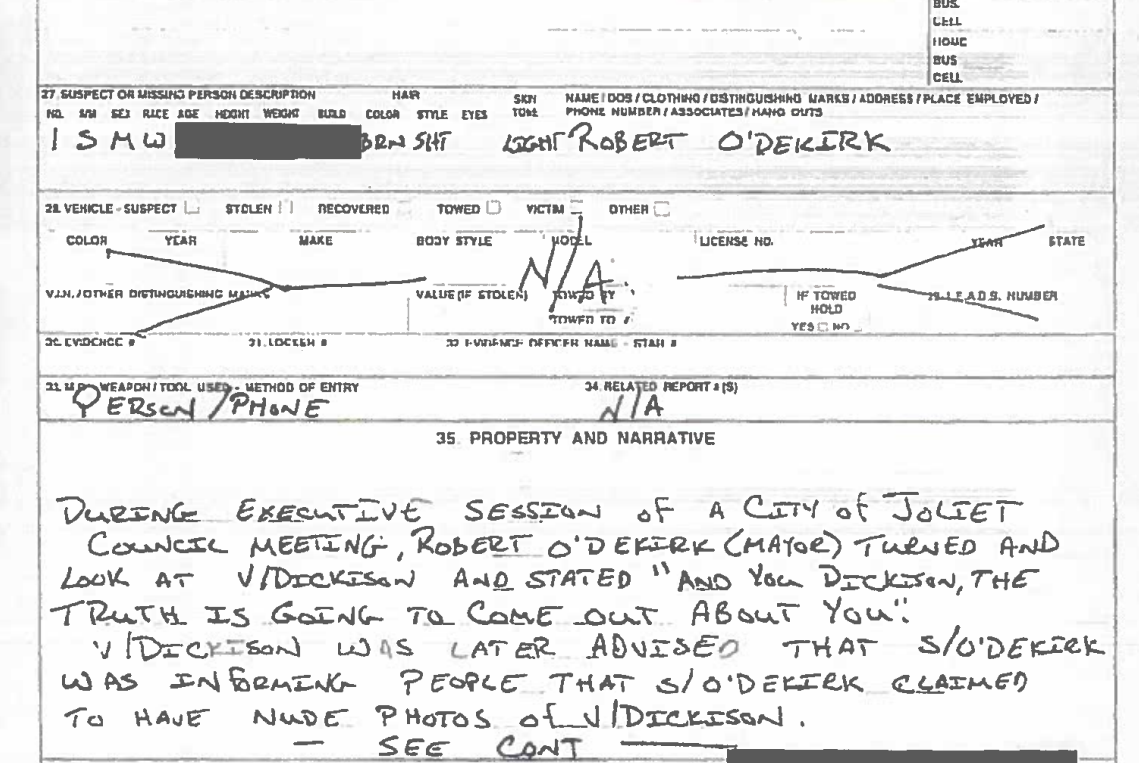 BUS.
CELL
HOME
BUS
CELL
27. SUSPECT OR MISSING PERSON DESCRIPTION HAIR SKIN NAME / DOB / CLOTHING / DISTINGUISHING MARKS / ADDRESS / PLACE EMPLOYED /
NO. S/M SEX RACE AGE HEIGHT WEIGHT BUILD COLOR STYLE EYES TONE PHONE NUMBER / ASSOCIATES / HANG OUTS
1 S M W BRN SHT LIGHT ROBERT O'DEKIRK
28. VEHICLE - SUSPECT STOLEN RECOVERED TOWED VICTIM OTHER
COLOR YEAR MAKE BODY STYLE MODEL LICENSE NO. YEAR STATE
N/A
V.I.N. / OTHER DISTINGUISHING MARKS VALUE (IF STOLEN) TOWED BY IF TOWED 29. L.E.A.D.S. NUMBER
HOLD
TOWED TO YES NO
30. EVIDENCE # 31. LOCKER # 32. EVIDENCE OFFICER NAME - STAR #
33. M.O. WEAPON / TOOL USED - METHOD OF ENTRY 34. RELATED REPORT # (S)
PERSON / PHONE N/A
35. PROPERTY AND NARRATIVE
DURING EXECUTIVE SESSION OF A CITY OF JOLIET
COUNCIL MEETING, ROBERT O'DEKIRK (MAYOR) TURNED AND
LOOK AT V/DICKISON AND STATED "AND YOU DICKISON, THE
TRUTH IS GOING TO COME OUT ABOUT YOU".
V/DICKISON WAS LATER ADVISED THAT S/O'DEKIRK
WAS INFORMING PEOPLE THAT S/O'DEKIRK CLAIMED
TO HAVE NUDE PHOTOS OF V/DICKISON.
— SEE CONT —